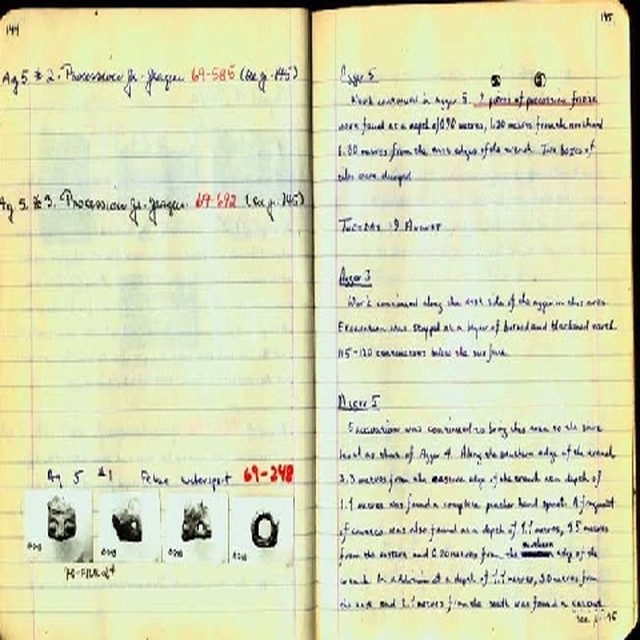 144
Ag 5 #2. Procession fr. fragm 69-585 (see p. 145)
Ag 5 #3. Procession fr. fragm. 69-692 (see p. 145)
Ag 5 #1 Feline waterspout 69-248
145
Agger 5
Work continued in agger 5. 2 pieces of procession frieze
were found at a depth of 0.90 metres, 1.20 metres from the north and
metres from the east edges of the trench. Two boxes of
tiles were dumped
TUESDAY 19 AUGUST
Agger 3
Work continued along the east side of the agger in this area
Excavation was stopped at a layer of burned and blackened earth
115-120 centimeters below the surface
Agger 5
Excavation was continued to bring this area to the same
level as that of Agger 4. Along the southern edge of the trench
3.3 metres from the eastern edge of the trench at a depth of
1.1 metres was found a complete panther head spout. A fragment
of was also found at a depth of 1.1 metres, metres
from the eastern and metres from the northern edge of the
trench. In addition at a depth of 1.1 metres, metres from
the east and metres from the south was found a second
see p. 146